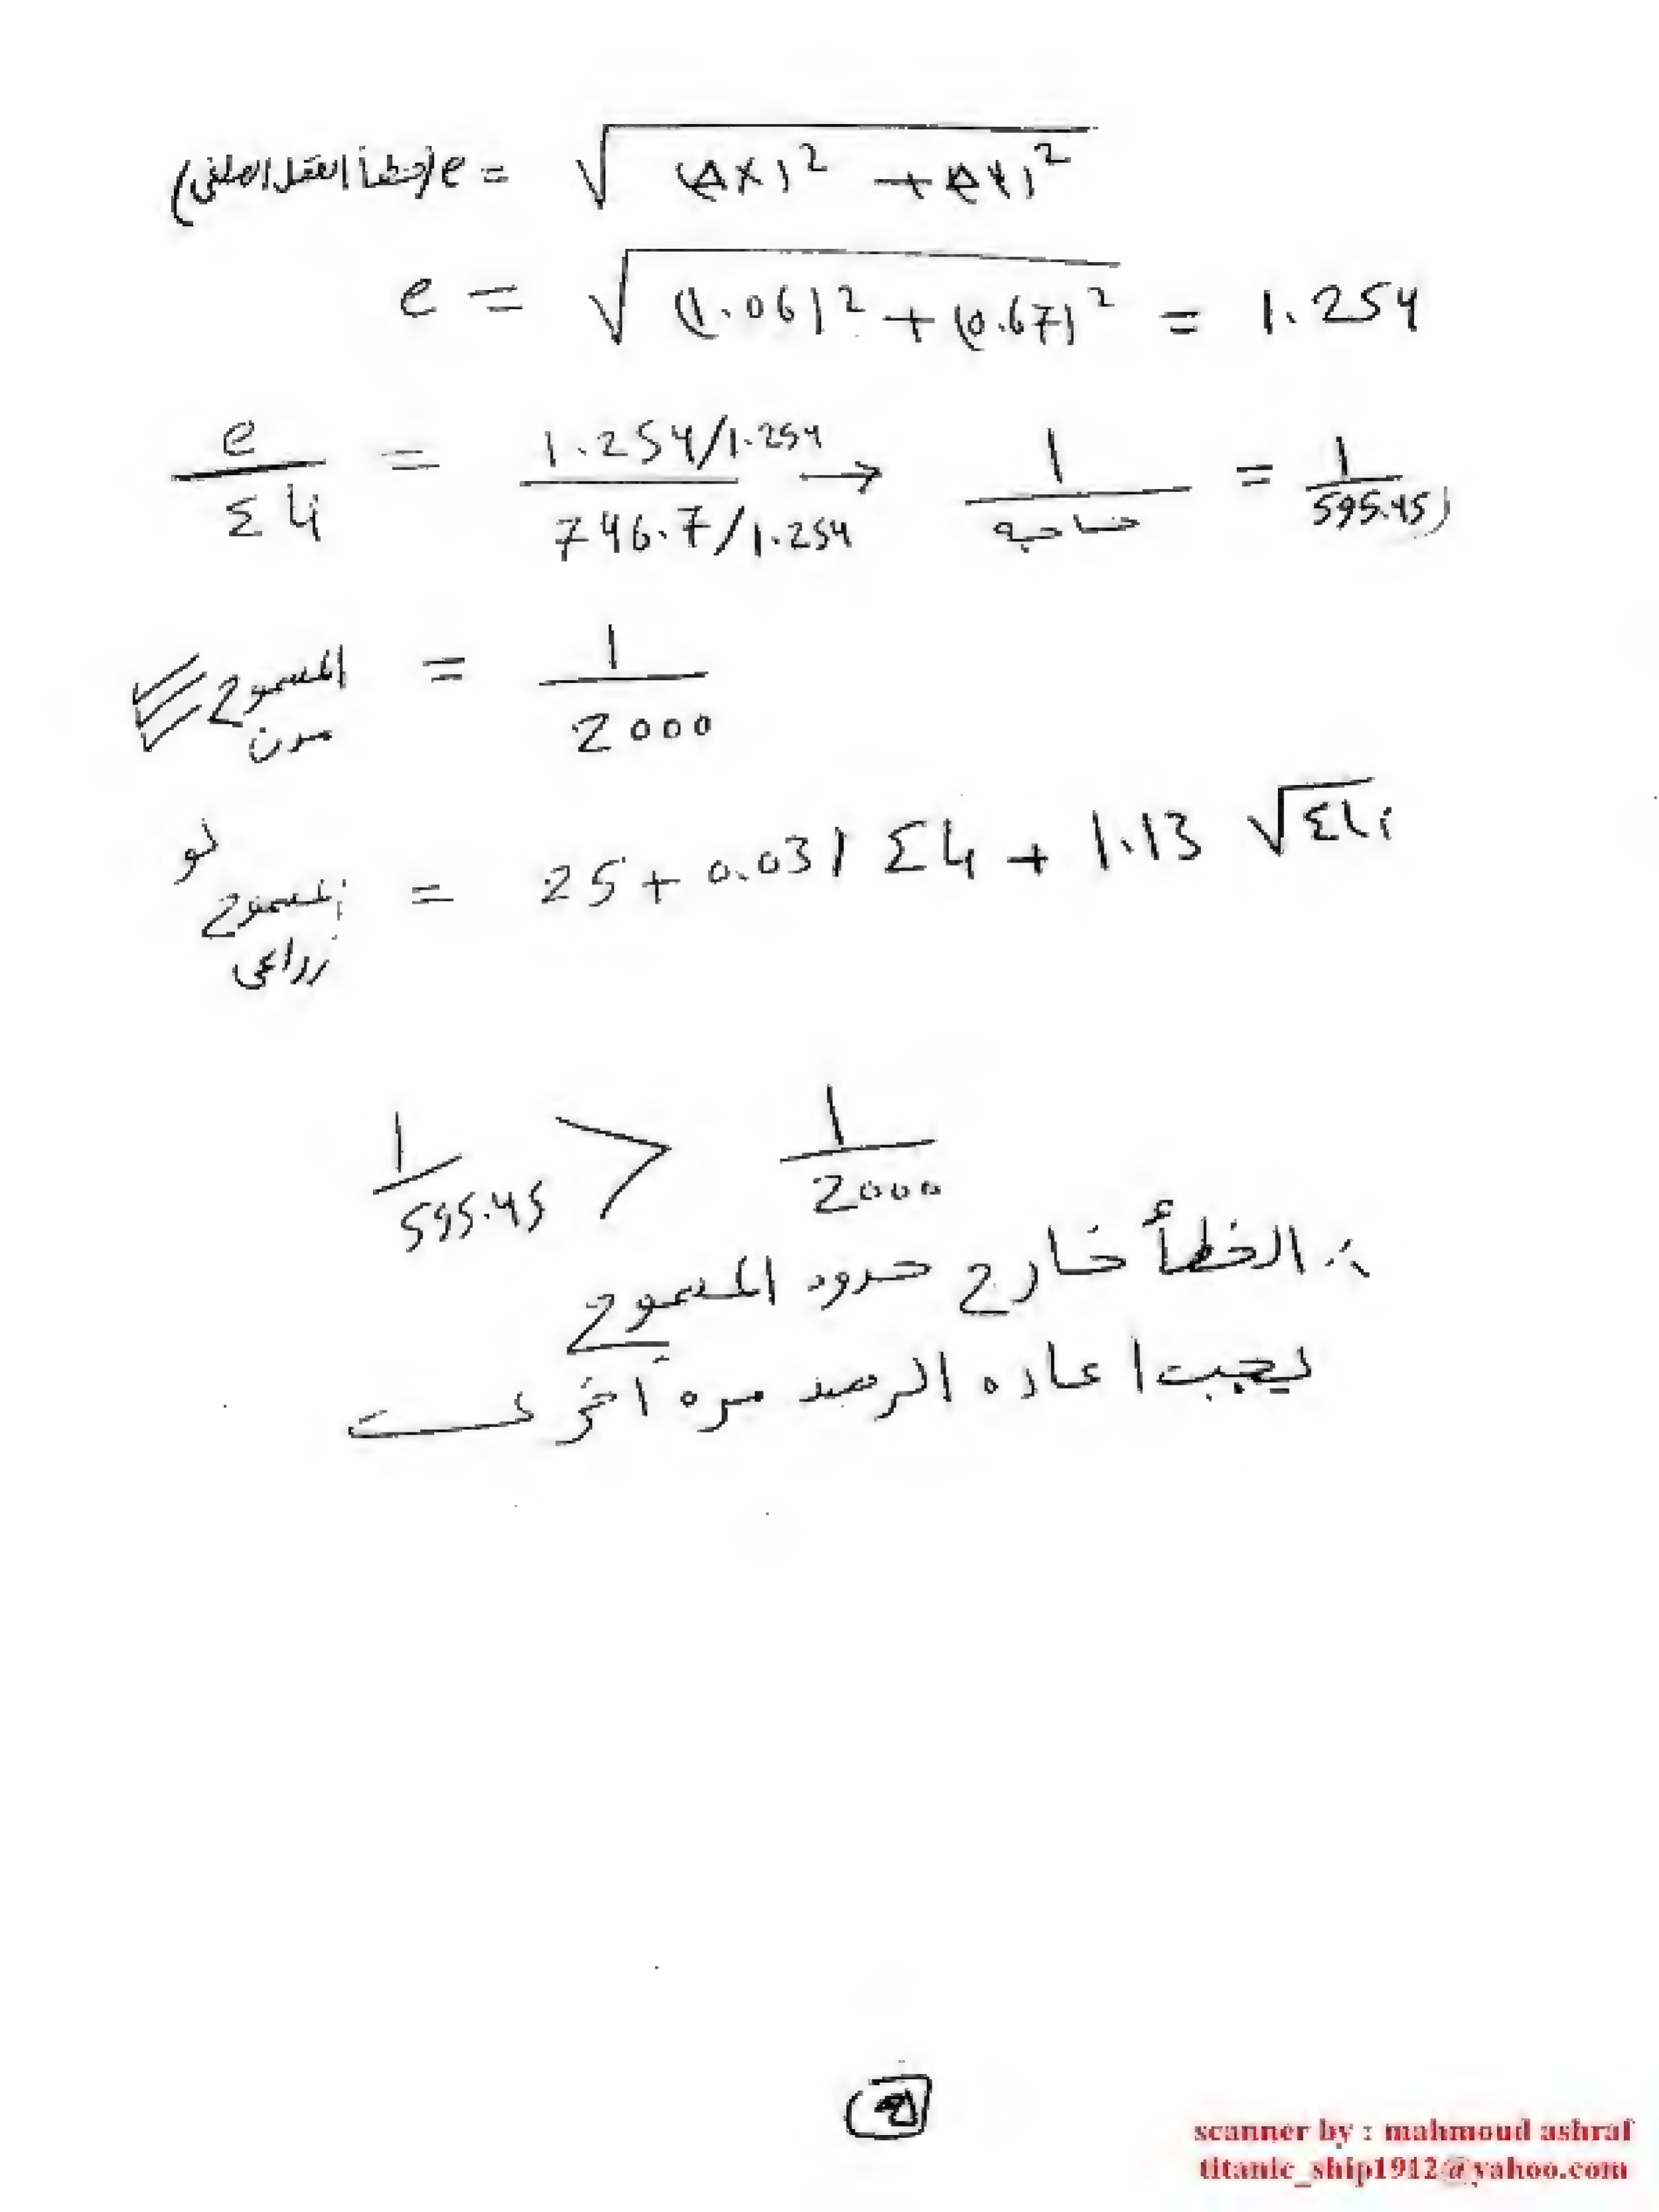 e (خطأ القفل الضلعى) = √(ΔX)² + (ΔY)²
e = √(1.06)² + (0.67)² = 1.254
e / ΣLi = 1.254/1.254 / 746.7/1.254 → 1 / = 1 / 595.45
المسموح مدن = 1 / 2000
لو المسموح زراعى = 25 + 0.031 ΣLi + 1.13 √ΣLi
1 / 595.45 > 1 / 2000
∴ الخطأ خارج حدود المسموح
يجب اعاده الرصد مره أخرى
scanner by : mahmoud ashraf
titanic_ship1912@yahoo.com